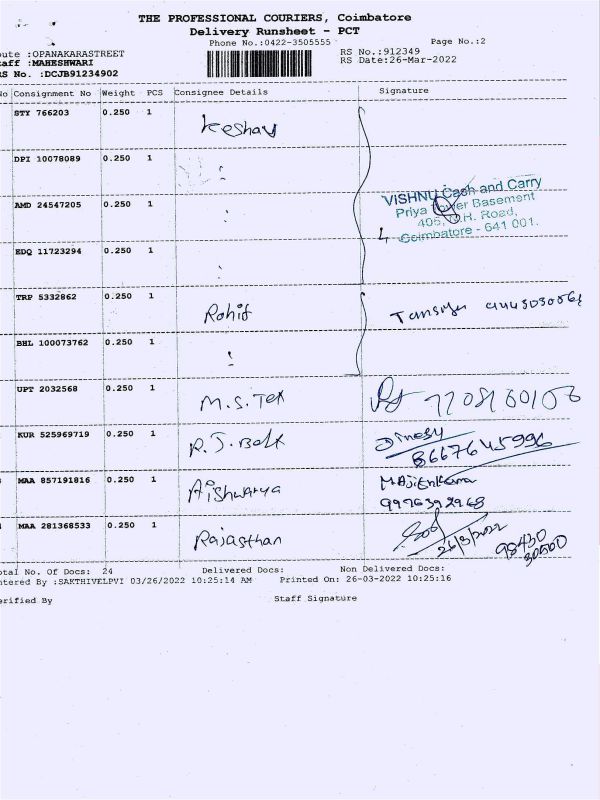 THE PROFESSIONAL COURIERS, Coimbatore
Delivery Runsheet - PCT
Phone No.:0422-3505555 Page No.:2
oute :OPANAKARASTREET RS No.:912349
taff :MAHESHWARI RS Date:26-Mar-2022
RS No. :DCJB91234902
No Consignment No Weight PCS Consignee Details Signature
STY 766203 0.250 1 Keshav
DPI 10078089 0.250 1
AMD 24547205 0.250 1
VISHNU Cash and Carry
Priya Tower Basement
405, H. Road,
Coimbatore - 641 001.
EDQ 11723294 0.250 1
TRP 5332862 0.250 1 Rohit
BHL 100073762 0.250 1
UPT 2032568 0.250 1 M.S. Tex
KUR 525969719 0.250 1 R.J. Belt Dinesh
8667645996
MAA 857191816 0.250 1 Aishwarya
9976392968
MAA 281368533 0.250 1 Rajasthan 26/3/2022 98430
30500
otal Of No. Of Docs: 24 Delivered Docs: Non Delivered Docs:
ntered By :SAKTHIVELPVI 03/26/2022 10:25:14 AM Printed On: 26-03-2022 10:25:16
erified By Staff Signature